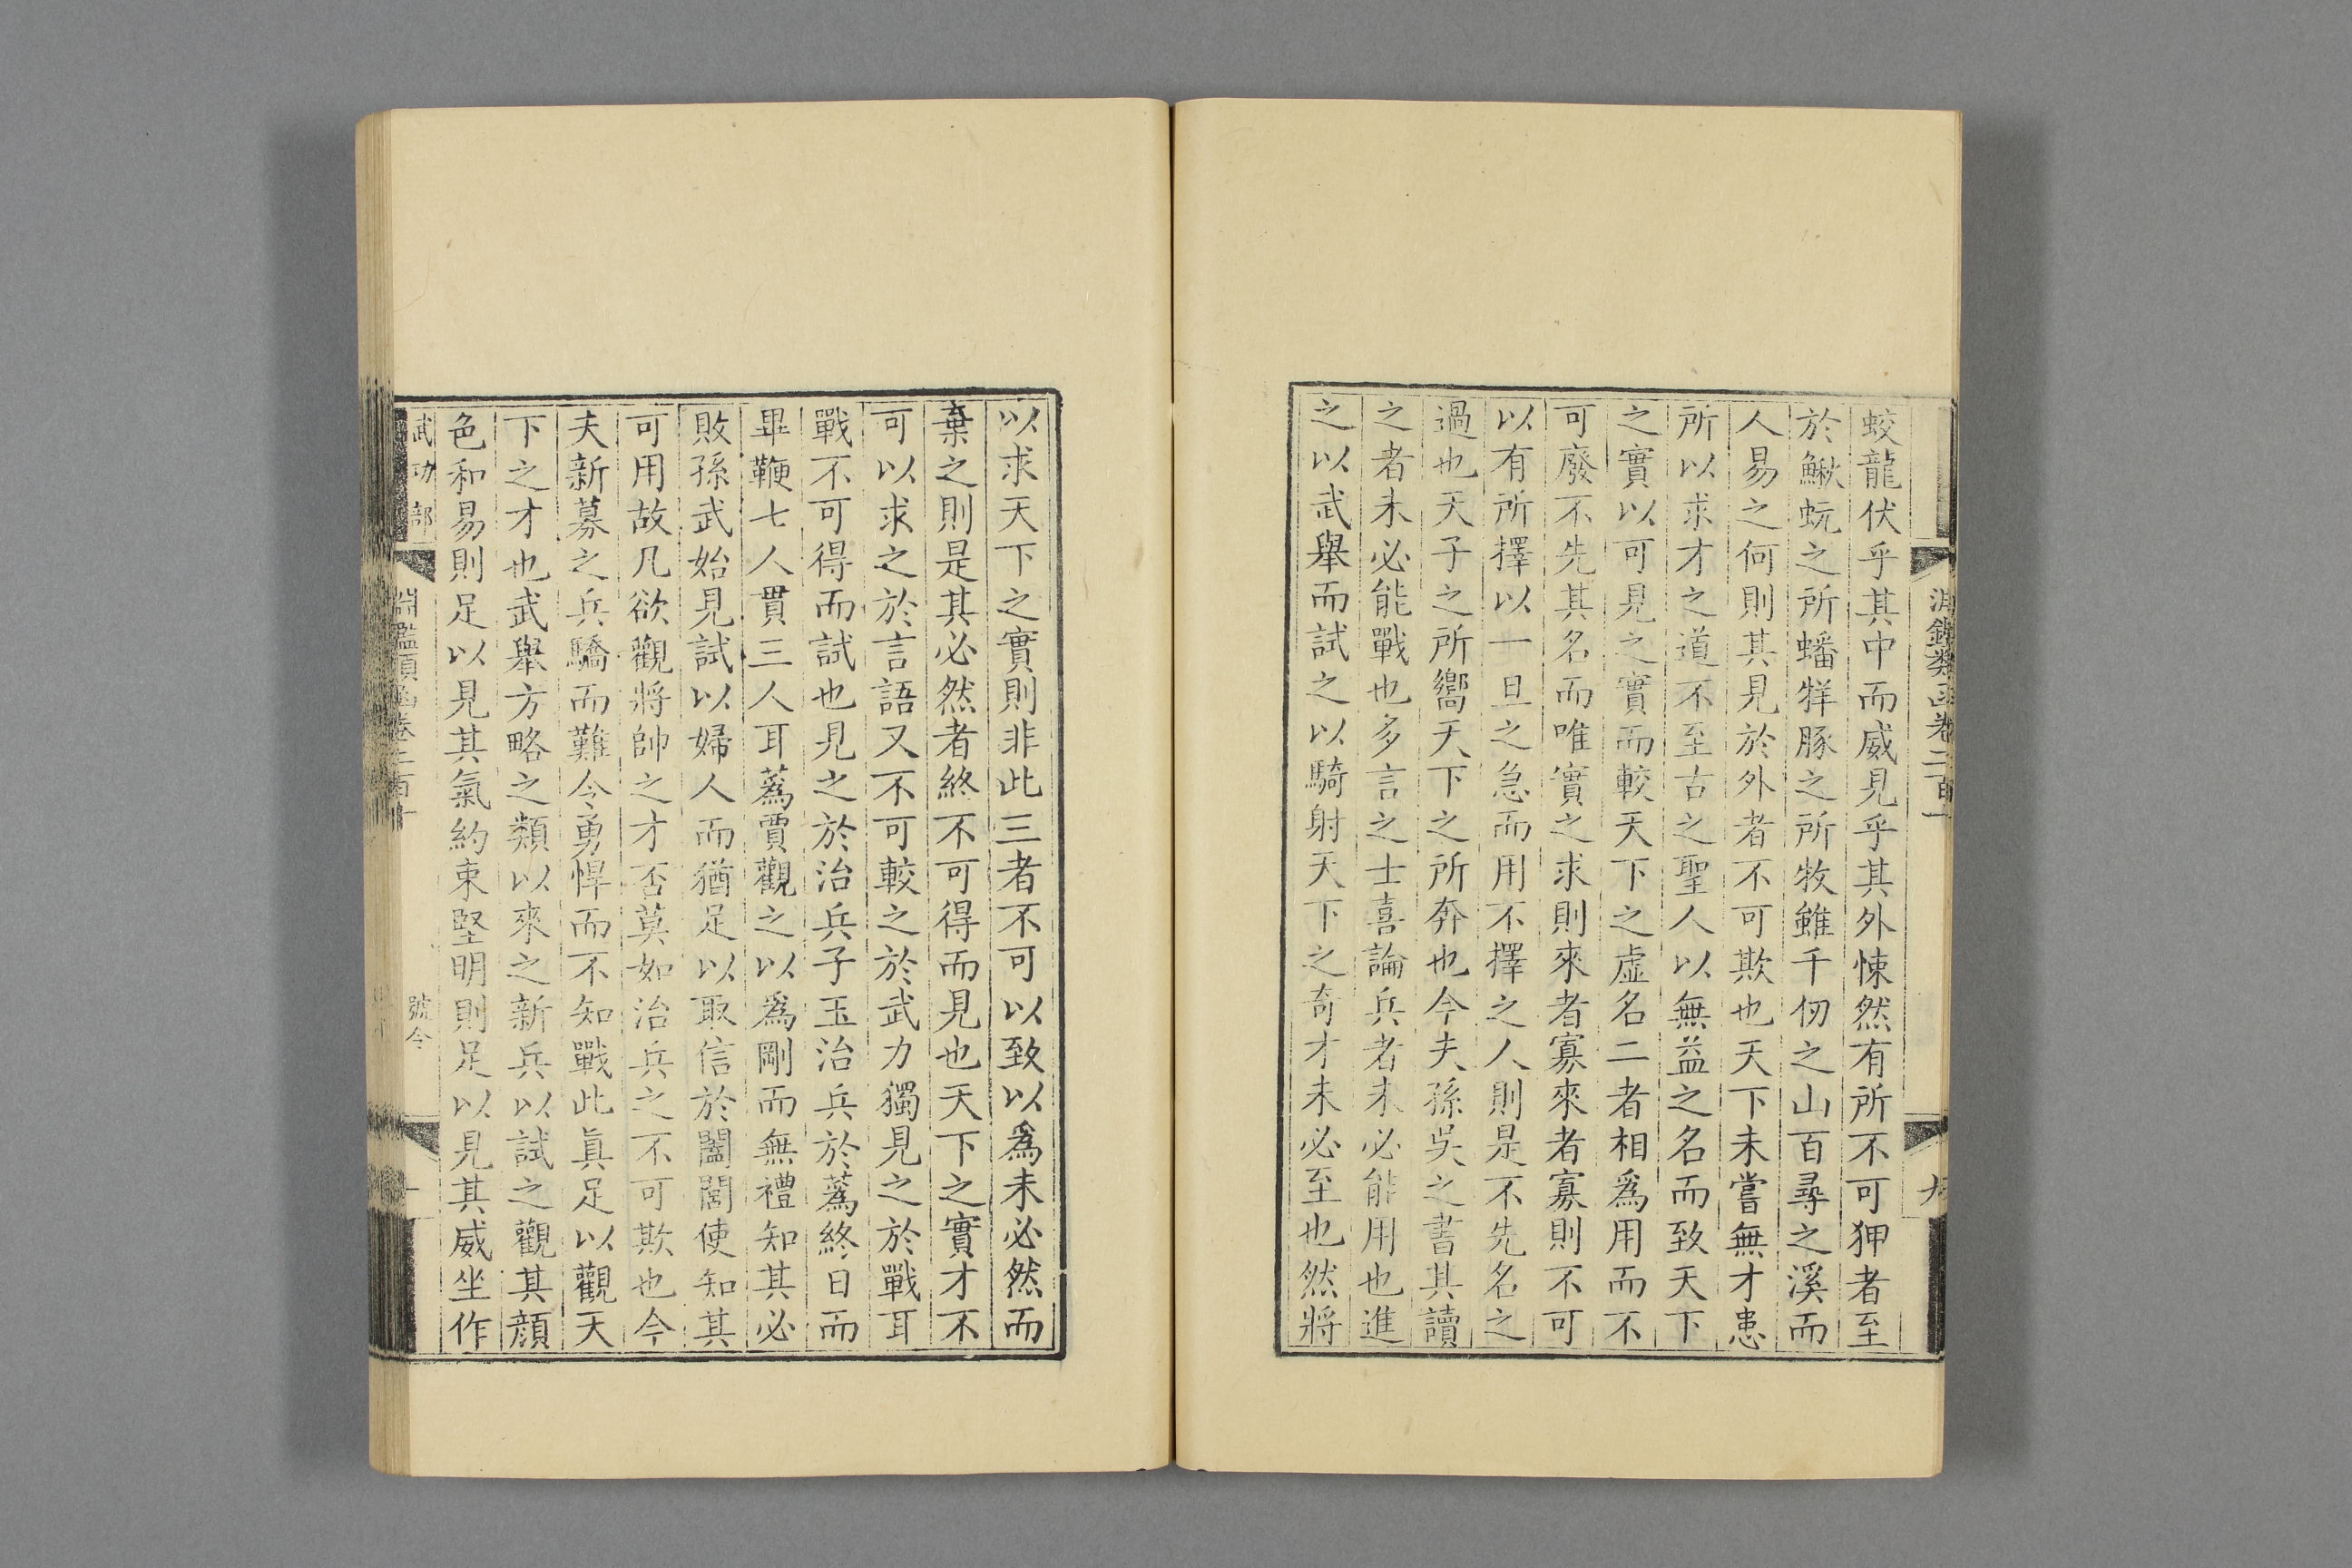 淵鑑類函卷二百一
九
蛟龍伏乎其中而威見乎其外悚然有所不可狎者至
於鰍蚖之所蟠牂豚之所牧雖千仞之山百尋之溪而
人易之何則其見於外者不可欺也天下未嘗無才患
所以求才之道不至古之聖人以無益之名而致天下
之實以可見之實而較天下之虛名二者相爲用而不
可廢不先其名而唯實之求則來者寡來者寡則不可
以有所擇以一旦之急而用不擇之人則是不先名之
過也天子之所嚮天下之所奔也今夫孫吳之書其讀
之者未必能戰也多言之士喜論兵者未必能用也進
之以武舉而試之以騎射天下之奇才未必至也然將
以求天下之實則非此三者不可以致以爲未必然而
棄之則是其必然者終不可得而見也天下之實才不
可以求之於言語又不可較之於武力獨見之於戰耳
戰不可得而試也見之於治兵子玉治兵於蒍終日而
畢鞭七人貫三人耳蒍賈觀之以爲剛而無禮知其必
敗孫武始見試以婦人而猶足以取信於闔閭使知其
可用故凡欲觀將帥之才否莫如治兵之不可欺也今
夫新募之兵驕而難令勇悍而不知戰此眞足以觀天
下之才也武舉方略之類以來之新兵以試之觀其顔
色和易則足以見其氣約束堅明則足以見其威坐作
武功部
淵鑑類函卷二百十
號令